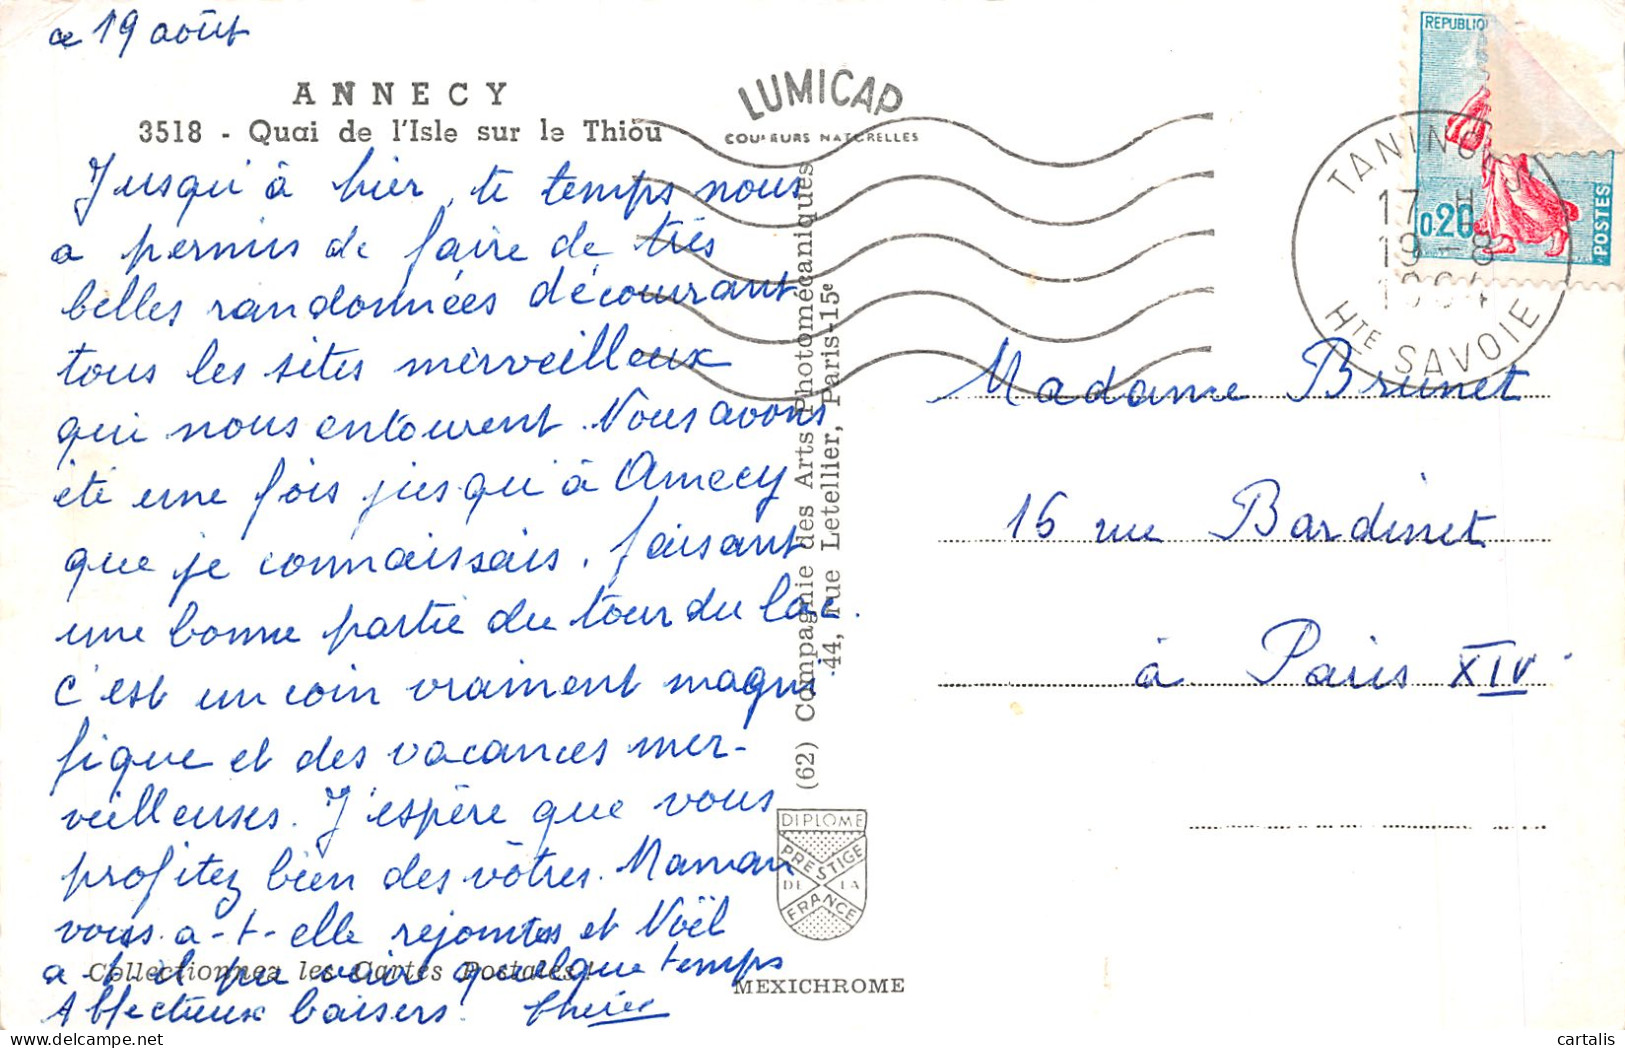 ce 19 août
ANNECY
3518 - Quai de l'Isle sur le Thiou
LUMICAP
COULEURS NATURELLES
Jusqu'à hier, le temps nous
a permis de faire de très
belles randonnées découvrant
tous les sites merveilleux
qui nous entourent. Nous avons
été une fois jusqu'à Annecy
que je connaissais, faisant
une bonne partie du tour du lac.
C'est un coin vraiment magni
fique et des vacances mer-
veilleuses. J'espère que vous
profitez bien des vôtres. Maman
vous a-t-elle rejointes et Noël
a-t-il pu venir quelque temps
Affectueux baisers.
Collectionnez les Cartes Postales !
(62) Compagnie des Arts Photomécaniques
44, rue Letellier, Paris-15e
DIPLOME
PRESTIGE
DE LA
FRANCE
MEXICHROME
REPUBLIQ
0.20
POSTES
TANINGES
17 H
19-8
1964
HTE SAVOIE
Madame Brunet
16 rue Bardinet
à Paris XIV
cartalis